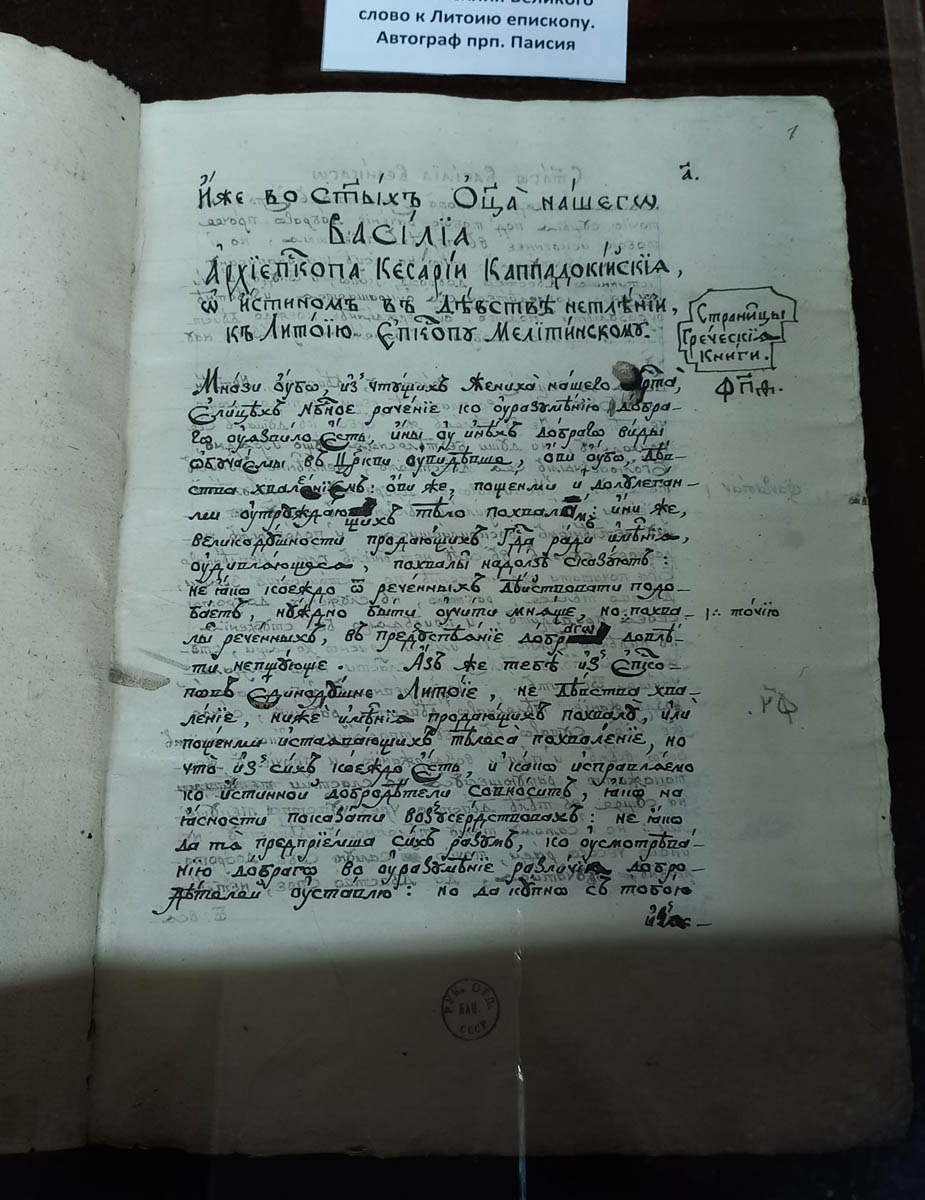 слово к Литоию епископу.
Автограф прп. Паисия
1
а҃.
И҆́же во ст҃ы́хъ Ѻ҆ц҃а̀ на́шегѡ
Васі́лїа
А҆рхїепⷭ҇копа Кесарі́и Каппадокі́йскїѧ,
ѡ҆ и҆́стинномъ въ дѣ́вствѣ нетлѣ́нїи,
къ Лито́їю Е҆пⷭ҇копу Мелїти́нскому.
Страни́цы
Гре́ческїѧ
Кни́ги.
Мно́зи ᲂу҆́бѡ, и҆з̾ чту́щихъ жениха̀ на́шего
Е҆ли́цѣхъ нбⷭ҇ное раче́нїе ко ᲂу҆разꙋмѣ́нїю добра-
гѡ ᲂу҆ѧзвило є҆́сть, и҆ны ᲂу҆ и҆нѣ́хъ до́брагѡ ви́ды
ѡ҆бꙋча́ємы въ Цр҃кви
ства хвале́нїємъ: ѻ҆ви же, поще́ньми и долꙋлеган-
ми ᲂу҆трꙋжда́ющихъ тѣ́ло похвала́мъ: и҆ни же,
великодꙋ́шности продаю́щихъ Гдⷭ҇а ра́ди и҆мѣ̑нїѧ,
ᲂу҆дивлѧ́ющесѧ, похвалы̀ надо́лзѣ сказꙋ́ютъ:
не ꙗ҆́кѡ ко́еждо ѿ рече́нныхъ дѣ́йствовати подо-
ба́етъ, нꙋ́ждно бы́ти ᲂу҆чи́ти мнѧ́ще, но похва- |:. то́чїю
лы̀ рече́нныхъ, въ предꙋстѣѧ́нїе до́брагѡ довлѣ́-
ти непщꙋ́юще. А҆́зъ же тебѣ̀ и҆з̾ Е҆пⷭ҇ко-
повъ є҆динодꙋ́шне Лито́їе, не дѣ́вства хва-
ле́нїе, нижѐ и҆мѣ̑нїѧ продаю́щихъ похвалꙋ̀, и҆лѝ
поще́ньми и҆стаѧва́ющихъ тѣлеса̀ похвале́нїе, но
что̀ и҆з̾ си́хъ ко́еждо є҆́сть, и҆ ка́кѡ и҆справлѧ́емо
ко и҆́стинной добродѣ́тели совно́ситъ, ꙗ҆́кѡ на
ꙗ҆́сности показа́ти возꙋсе́рдствовахъ: не ꙗ҆́кѡ
да та̀ предпрїе́млѧ си́хъ ра́зꙋмъ, ко ᲂу҆смотрѣва́-
нїю до́брагѡ во ᲂу҆разꙋмѣ́нїе разли́чїѧ добро-
дѣ́телей ᲂу҆ста́влю: но да кꙋ́пнѡ съ тобо́ю
РУК. ОТД.
БАН.
СССР